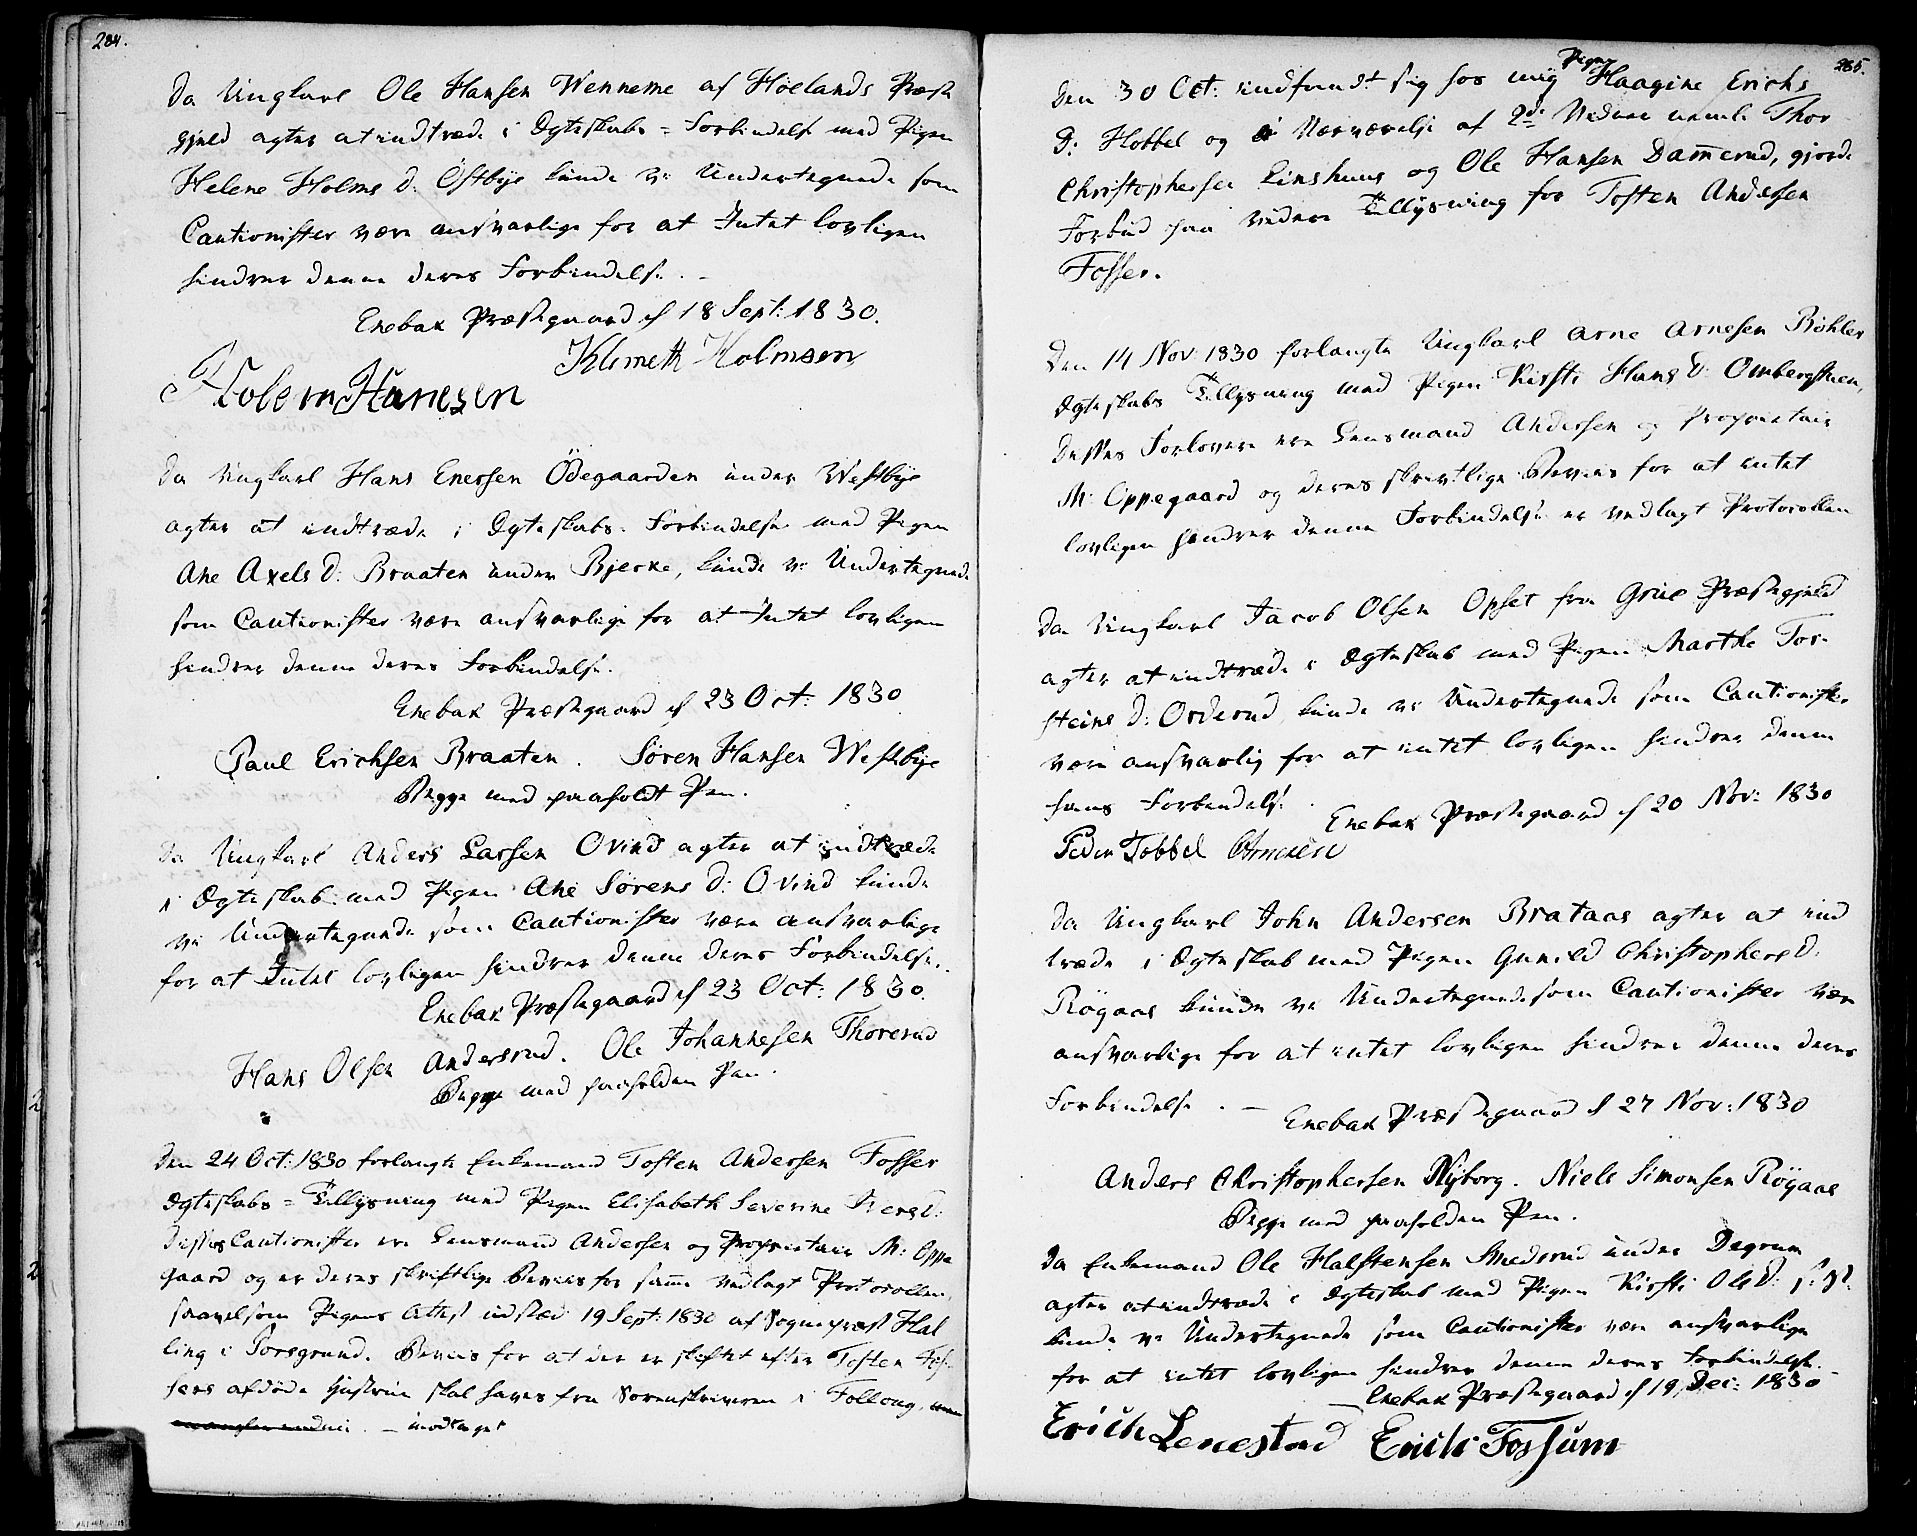 284.
Da Ungkarl Ole Hansen Wenneme af Høelands Præste
gjeld agter at indtræde i Ægteskabs=Forbindelse med Pigen
Helene Holms D: Østbye kunde vi Undertegnede som
Cautionister være ansvarlige for at Intet lovligen
hindrer denne deres Forbindelse. -
Enebak Præstegaard d 18 Sept: 1830.
Klimeth Holmsen
Holem Hansen
Da Ungkarl Hans Enersen Ödegaarden under Westbye
agter at indtræde i Ægteskabs-Forbindelse med Pigen
Ane Axels D: Braaten under Bjerke, kunde vi Undertegnede
som Cautionister være ansvarlige for at Intet lovligen
hindrer denne deres Forbindelse.
Enebak Præstegaard d 23 Oct: 1830
Paul Erichsen Braaten. Søren Hansen Westbye
Begge med paaholdt Pen.
Da Ungkarl Anders Larsen Ovind agter at indtræde
i Ægteskab med Pigen Ane Sørens D: Ovind kunde
vi Undertegnede som Cautionister være ansvarlige
for at Intet lovligen hindrer denne deres Forbindelse.
Enebak Præstegaard d 23 Oct: 1830.
Hans Olsen Andersrud. Ole Johannesen Thorerud
Begge med paaholden Pen.
Den 24 Oct: 1830 forlangte Enkemand Tosten Andersen Fosser
Ægteskabs=Tillysning med Pigen Elisabeth Severine Iversd:
Disses Cautionister ere Lensmand Andersen og Proprietair M: Oppe
gaard og er deres skriftlige Beviis for samme vedlagt Protocollen,
saavelsom Pigens Attest udstæd 19 Sept: 1830 af Sognepræst Hal
ling i Porsgrund. Beviis for at der er skiftet efter Tosten Fos-
sers afdøde Hustrue skal haves fra Sorenskriveren i Folloug,
- modtaget
285.
Pigen
Den 30 Oct: indfandt sig hos mig Haagine Erichs
D: Hobbel og i Nærværelse af 2de Vidner nemlig Thor
Christophersen Linshuus og Ole Hansen Dammerud, gjorde
Forbud paa videre Tillysning for Tosten Andersen
Fosser.
Den 14 Nov: 1830 forlangte Ungkarl Arne Arnesen Böhler
Ægteskabs Tillysning med Pigen Kirsti Hans D: Ombergstuen,
Disses Forlovere ere Lensmand Andersen og Proprietair
M: Oppegaard og deres skrivtlige Beviis for at intet
lovligen hindrer denne Forbindelse er vedlagt Protocollen
Da Ungkarl Jacob Olsen Opset fra Grue Præstegjeld
agter at indtræde i Ægteskab med Pigen Marthe Tor-
steins D: Orderud, kunde vi Undertegnede som Cautionister
være ansvarlig for at intet lovligen hindrer denne
hans Forbindelse.
Enebak Præstegaard d 20 Nov: 1830
Peder Tobbel Arnesen
Da Ungkarl John Andersen Brataas agter at ind
træde i Ægteskab med Pigen Gunild Christophers D:
Röyaas kunde vi Undertegnede som Cautionister være
ansvarlige for at intet lovligen hindrer denne deres
Forbindelse. -
Enebak Præstegaard d 27 Nov: 1830
Anders Christophersen Nyborg. Niels Simonsen Röyaas
Begge med paaholden Pen.
Da Enkemand Ole Halstensen Smedrud under Degrum
agter at indtræde i Ægteskab med Pigen Kirsti Ols D:
kunde vi Undertegnede som Cautionister være ansvarlige
for at intet lovligen hindrer denne deres Forbindelse. -
Enebak Præstegaard d 19 Dec: 1830
Erich Lenestad Erich Fossum